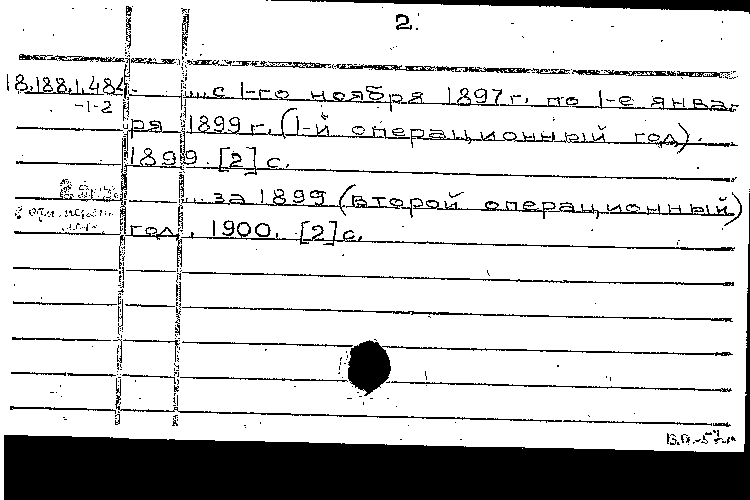 2.
18.188.1.484- ...с 1-го ноября 1897г. по 1-е янва-
-1-2
ря 1899г. (1-й операционный год).
1899. [2] с.
...за 1899 (второй операционный)
год. 1900. [2] с.